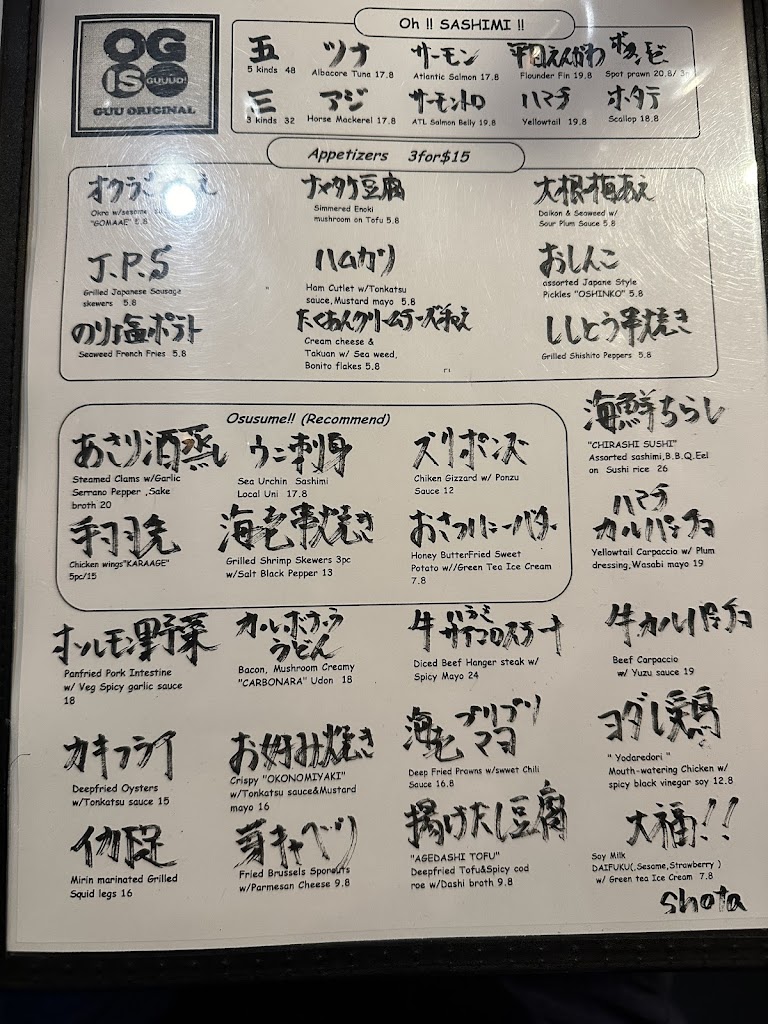 OG
IS GUUUD!
GUU ORIGINAL
Oh !! SASHIMI !!
五 ツナ サーモン 平目えんがわ ボタンエビ
5 kinds 48 Albacore Tuna 17.8 Atlantic Salmon 17.8 Flounder Fin 19.8 Spot prawn 20.8/
三 アジ サーモントロ ハマチ ホタテ
3 kinds 32 Horse Mackerel 17.8 ATL Salmon Belly 19.8 Yellowtail 19.8 Scallop 18.8
Appetizers 3for$15
オクラ
Okra w/sesame
"GOMAAE" 5.8
ナメタケ豆腐
Simmered Enoki
mushroom on Tofu 5.8
大根梅あえ
Daikon & Seaweed w/
Sour Plum Sauce 5.8
J.P.S
Grilled Japanese Sausage
skewers 5.8
ハムカツ
Ham Cutlet w/Tonkatsu
sauce,Mustard mayo 5.8
おしんこ
assorted Japane Style
Pickles "OSHINKO" 5.8
のり塩ポテト
Seaweed French Fries 5.8
たくあんクリームチーズ和え
Cream cheese &
Takuan w/ Sea weed,
Bonito flakes 5.8
ししとう串焼き
Grilled Shishito Peppers 5.8
Osusume!! (Recommend)
あさり酒蒸し
Steamed Clams w/Garlic
Serrano Pepper ,Sake
broth 20
ウニ刺身
Sea Urchin Sashimi
Local Uni 17.8
ズリポンズ
Chiken Gizzard w/ Ponzu
Sauce 12
海鮮ちらし
"CHIRASHI SUSHI"
Assorted sashimi,B.B.Q.Eel
on Sushi rice 26
手羽先
Chicken wings"KARAAGE"
5pc/15
海老串焼き
Grilled Shrimp Skewers 3pc
w/Salt Black Pepper 13
おさつハニーバター
Honey ButterFried Sweet
Potato w//Green Tea Ice Cream
7.8
ハマチ
カルパッチョ
Yellowtail Carpaccio w/ Plum
dressing,Wasabi mayo 19
ホルモン野菜
Panfried Pork Intestine
w/ Veg Spicy garlic sauce
18
カルボナーラ
うどん
Bacon, Mushroom Creamy
"CARBONARA" Udon 18
牛ハラミサイコロステーキ
Diced Beef Hanger steak w/
Spicy Mayo 24
牛カルパッチョ
Beef Carpaccio
w/ Yuzu sauce 19
カキフライ
Deepfried Oysters
w/Tonkatsu sauce 15
お好み焼き
Crispy "OKONOMIYAKI"
w/Tonkatsu sauce&Mustard
mayo 16
海老プリプリマヨ
Deep Fried Prawns w/swwet Chili
Sauce 16.8
ヨダレ鶏
" Yodaredori "
Mouth-watering Chicken w/
spicy black vinegar soy 12.8
イカ足
Mirin marinated Grilled
Squid legs 16
芽キャベツ
Fried Brussels Sporouts
w/Parmesan Cheese 9.8
揚げだし豆腐
"AGEDASHI TOFU"
Deepfried Tofu&Spicy cod
roe w/Dashi broth 9.8
大福!!
Soy Milk
DAIFUKU(,Sesame,Strawberry )
w/ Green tea Ice Cream 7.8
shota